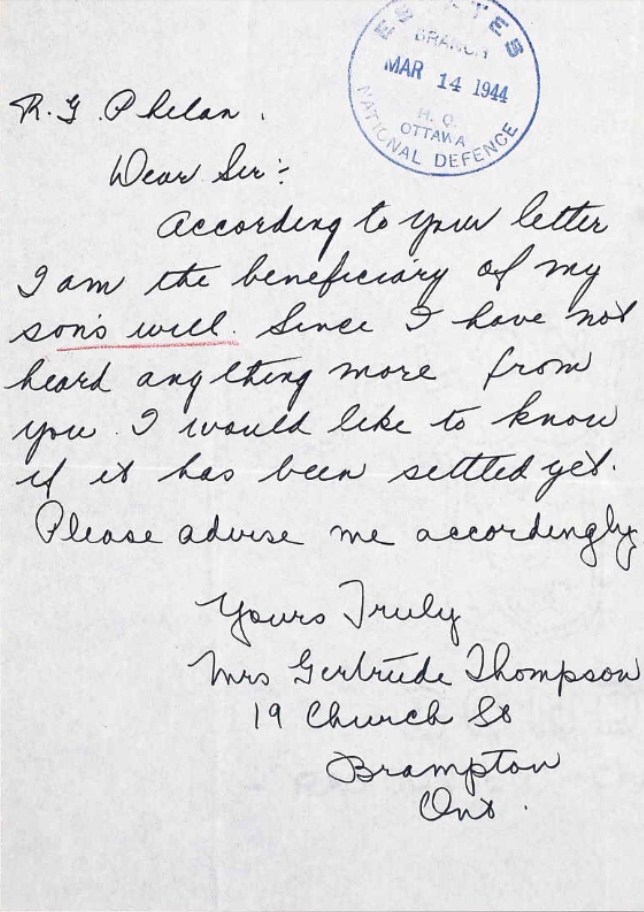 ESTATES
BRANCH
MAR 14 1944
H. Q.
OTTAWA
NATIONAL DEFENCE
R. G. Phelan.
Dear Sir:-
According to your letter
I am the beneficiary of my
son's will. Since I have not
heard anything more from
you I would like to know
if it has been settled yet.
Please advise me accordingly
Yours Truly
Mrs Gertrude Thompson
19 Church St
Brampton
Ont.